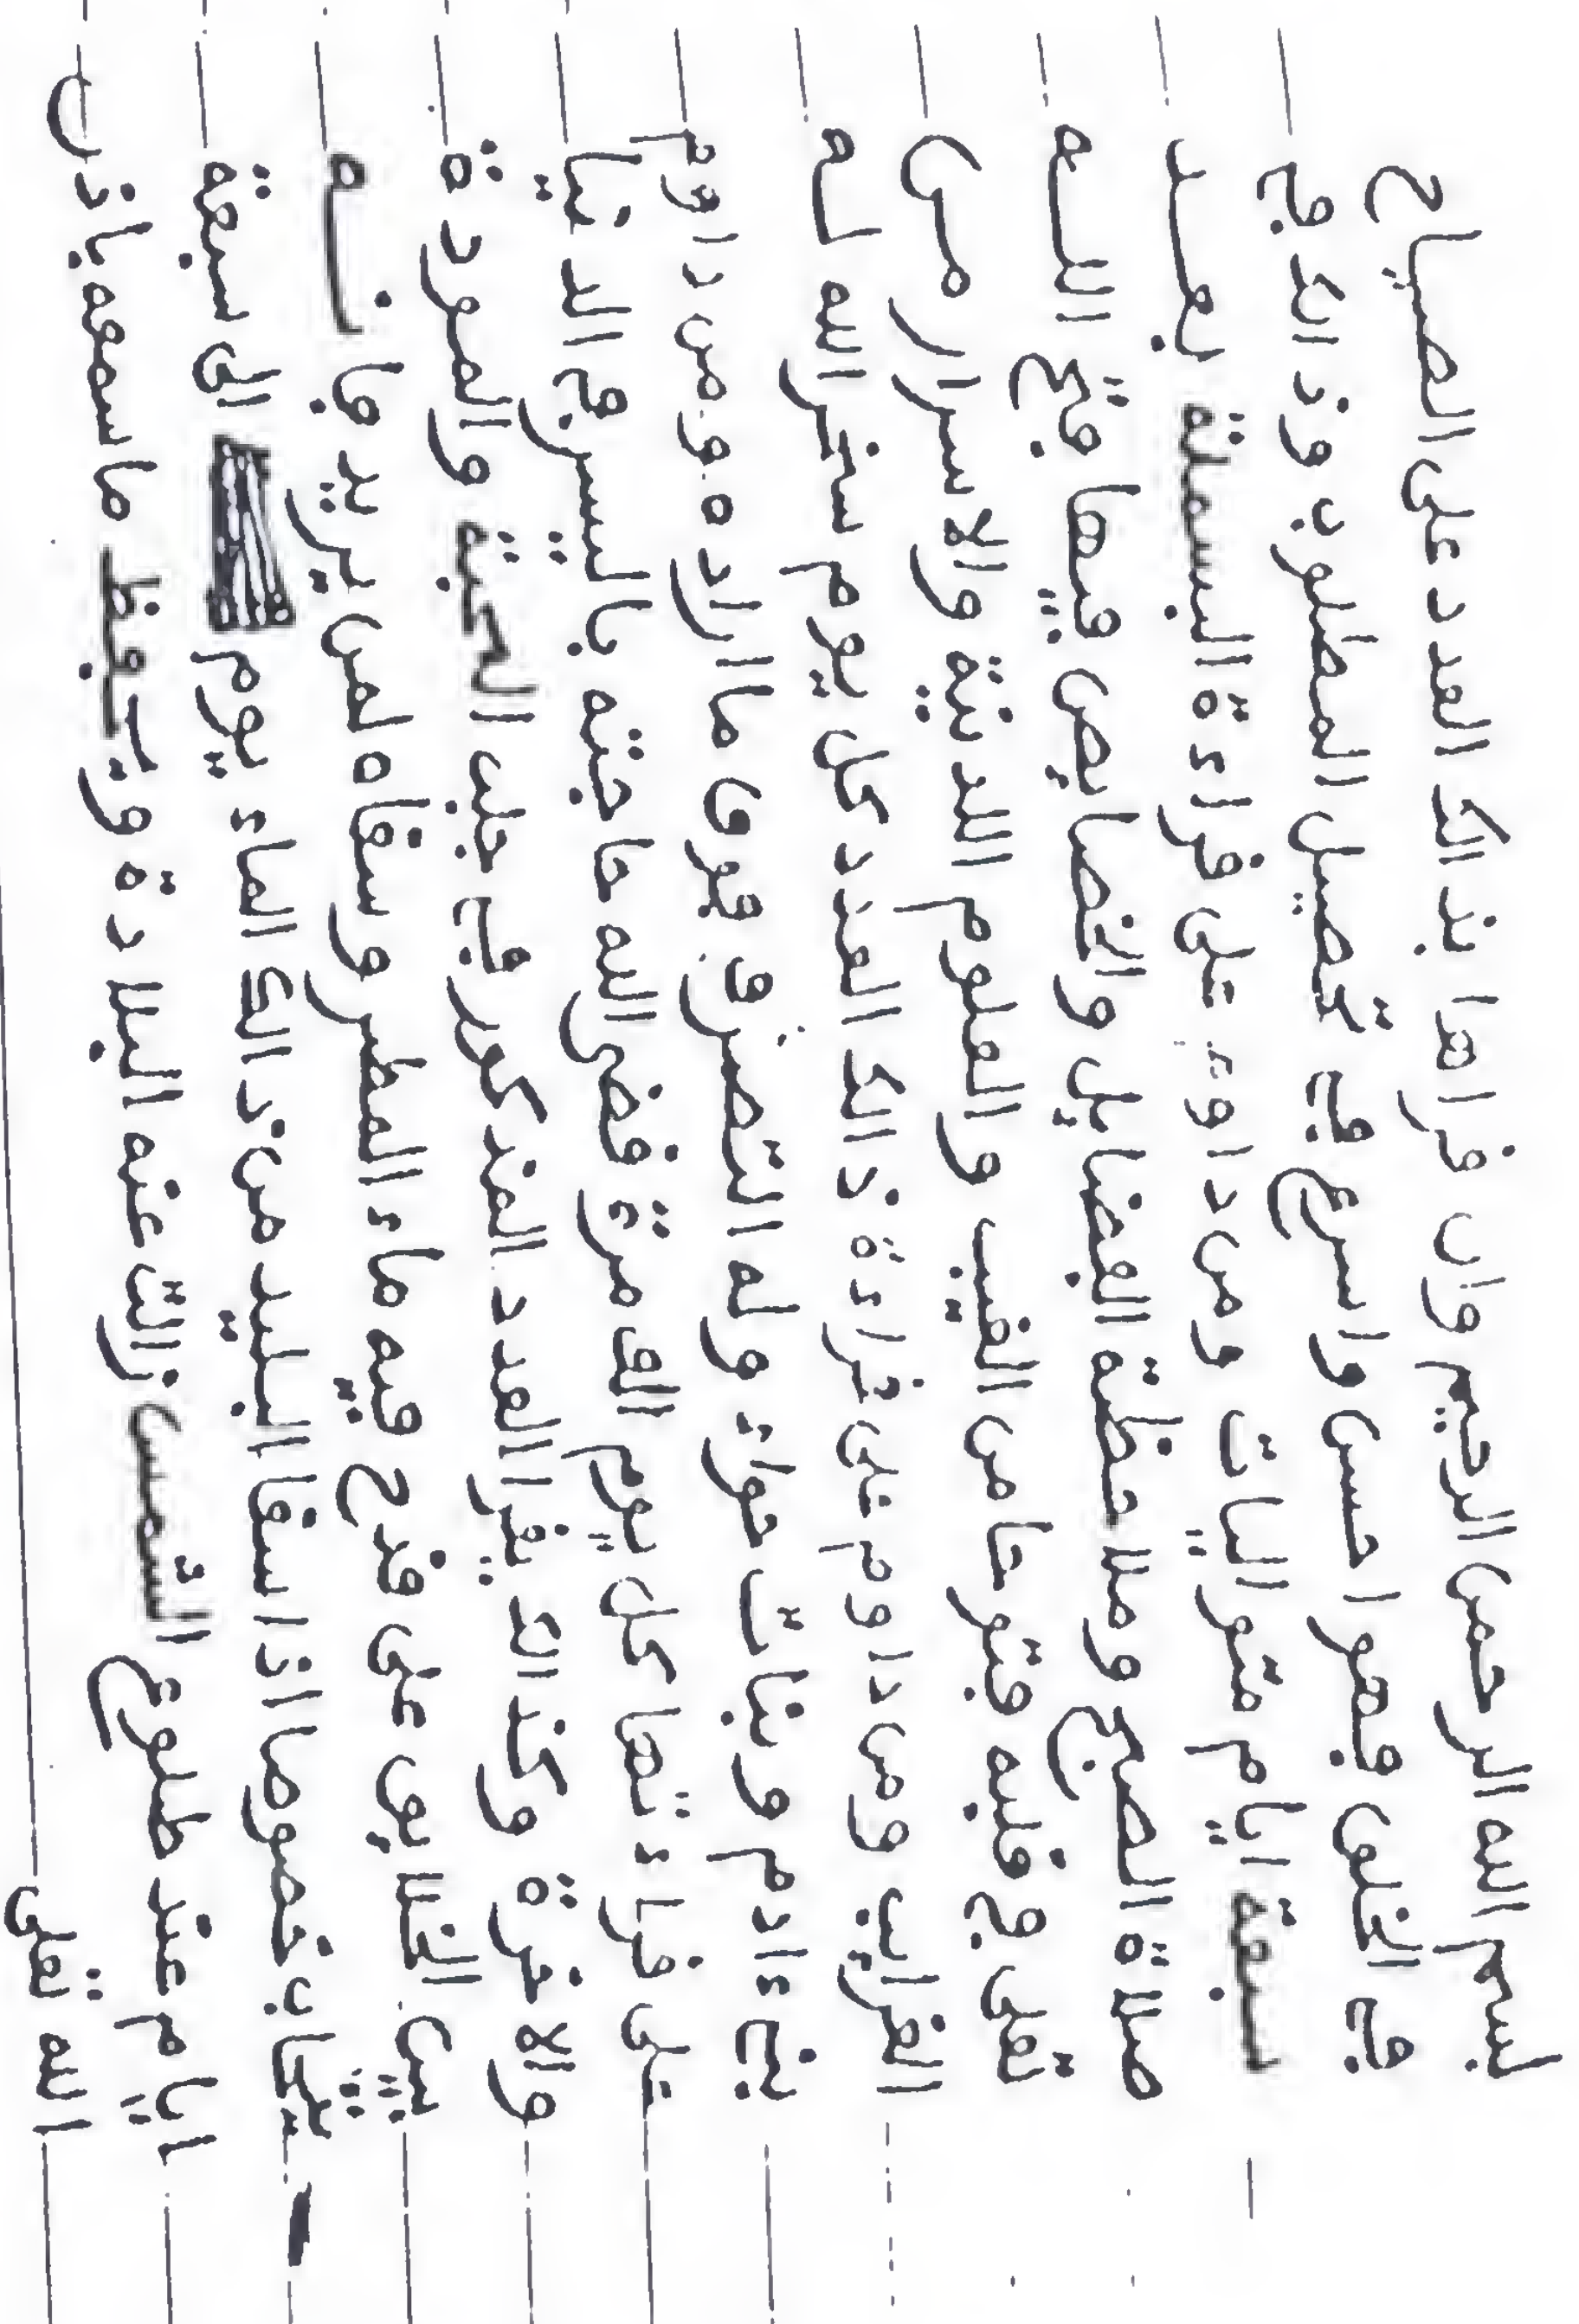 بسم الله الرحمن الرحيم وان قراها بذالك العدد على الصباح
في الخلق فهو احسن واسرع في تحصيل المطلوب وذالك في
سبعة ايام متواليات ومن داوم على قراءة البسملة بعد
صلاة الصبح وملاحظة الفضايل والخصايص فيها فتح الله
تعلى في قلبه فتوحا من الغيب والعلوم اللدنية والاسرار من
الغرايب ومن داوم على قراءة ذالك العدد كل يوم سخر الله له
بني ءادم وبنات حواء وله التصرف فوق ما اراده ومن داوم
على قراءتها كل يوم الف مرة قضى الله حاجته باليسر في الدنيا
والاخرة وكذالك يقرا العدد المذكور في جلب المحبة والمودة
بين الخلايق على قدح فيه ماء المطر وسقاه لمن يريد فانه
يتحاب خصوصا اذا سقا البليد من ذالك الماء يوم الى سبعة
ايام عند طلوع الشمس زالت عنه البلادة ويحفظ ما سمعه باذن
الله تعلى